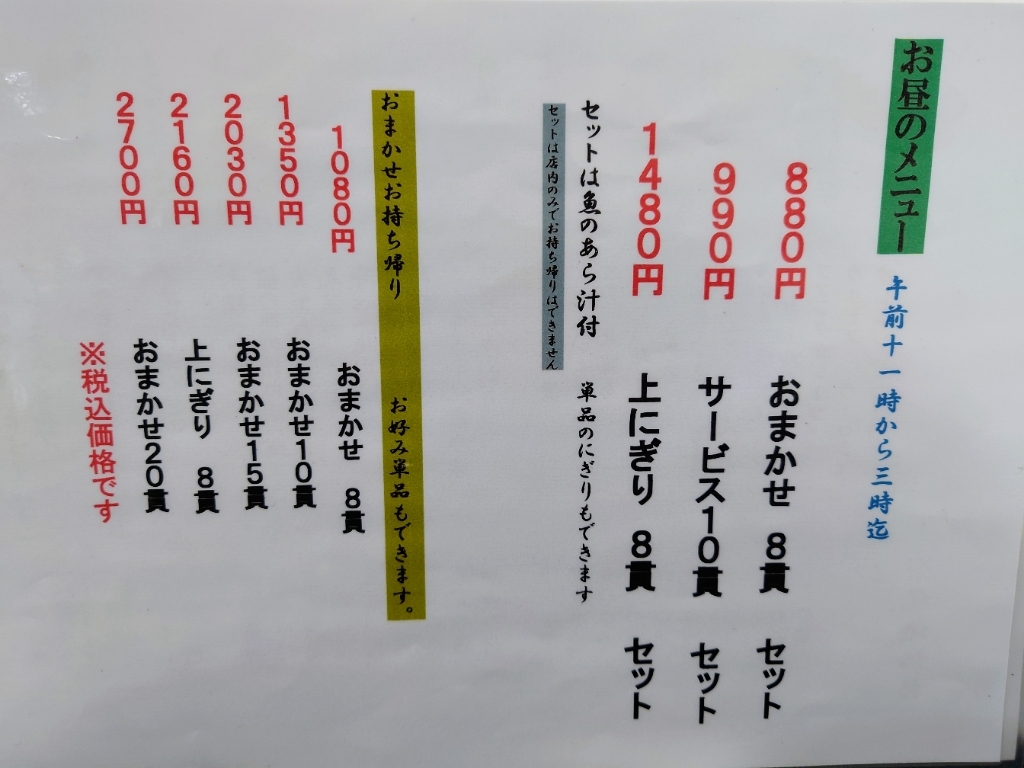 お昼のメニュー
午前十一時から三時迄
880円 おまかせ 8貫 セット
990円 サービス10貫 セット
1480円 上にぎり 8貫 セット
セットは魚のあら汁付 単品のにぎりもできます
セットは店内のみでお持ち帰りはできません
おまかせお持ち帰り お好み単品もできます。
1080円 おまかせ 8貫
1350円 おまかせ10貫
2030円 おまかせ15貫
2160円 上にぎり 8貫
2700円 おまかせ20貫
※税込価格です